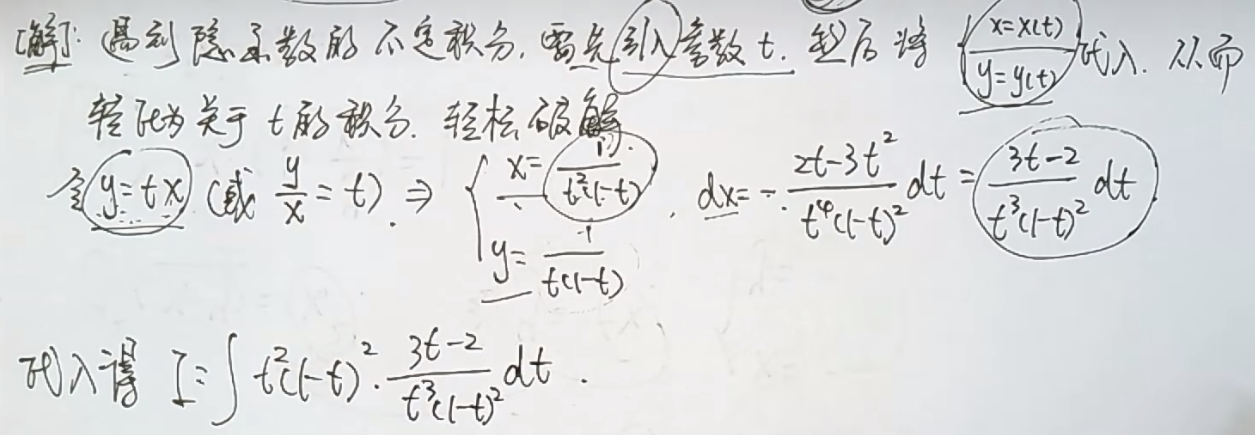 [解]: 遇到隐函数的不定积分, 需先引入参数 t. 然后将 { x=x(t) y=y(t) 代入. 从而
转化为关于 t 的积分. 轻松破解.
令 y=tx (或 y/x = t). ⇒ { x= 1/(t²(1-t)) , y= 1/(t(1-t)) . dx= - (2t-3t²)/(t⁴(1-t)²) dt = (3t-2)/(t³(1-t)²) dt
代入得 I = ∫ t²(1-t)² · (3t-2)/(t³(1-t)²) dt .